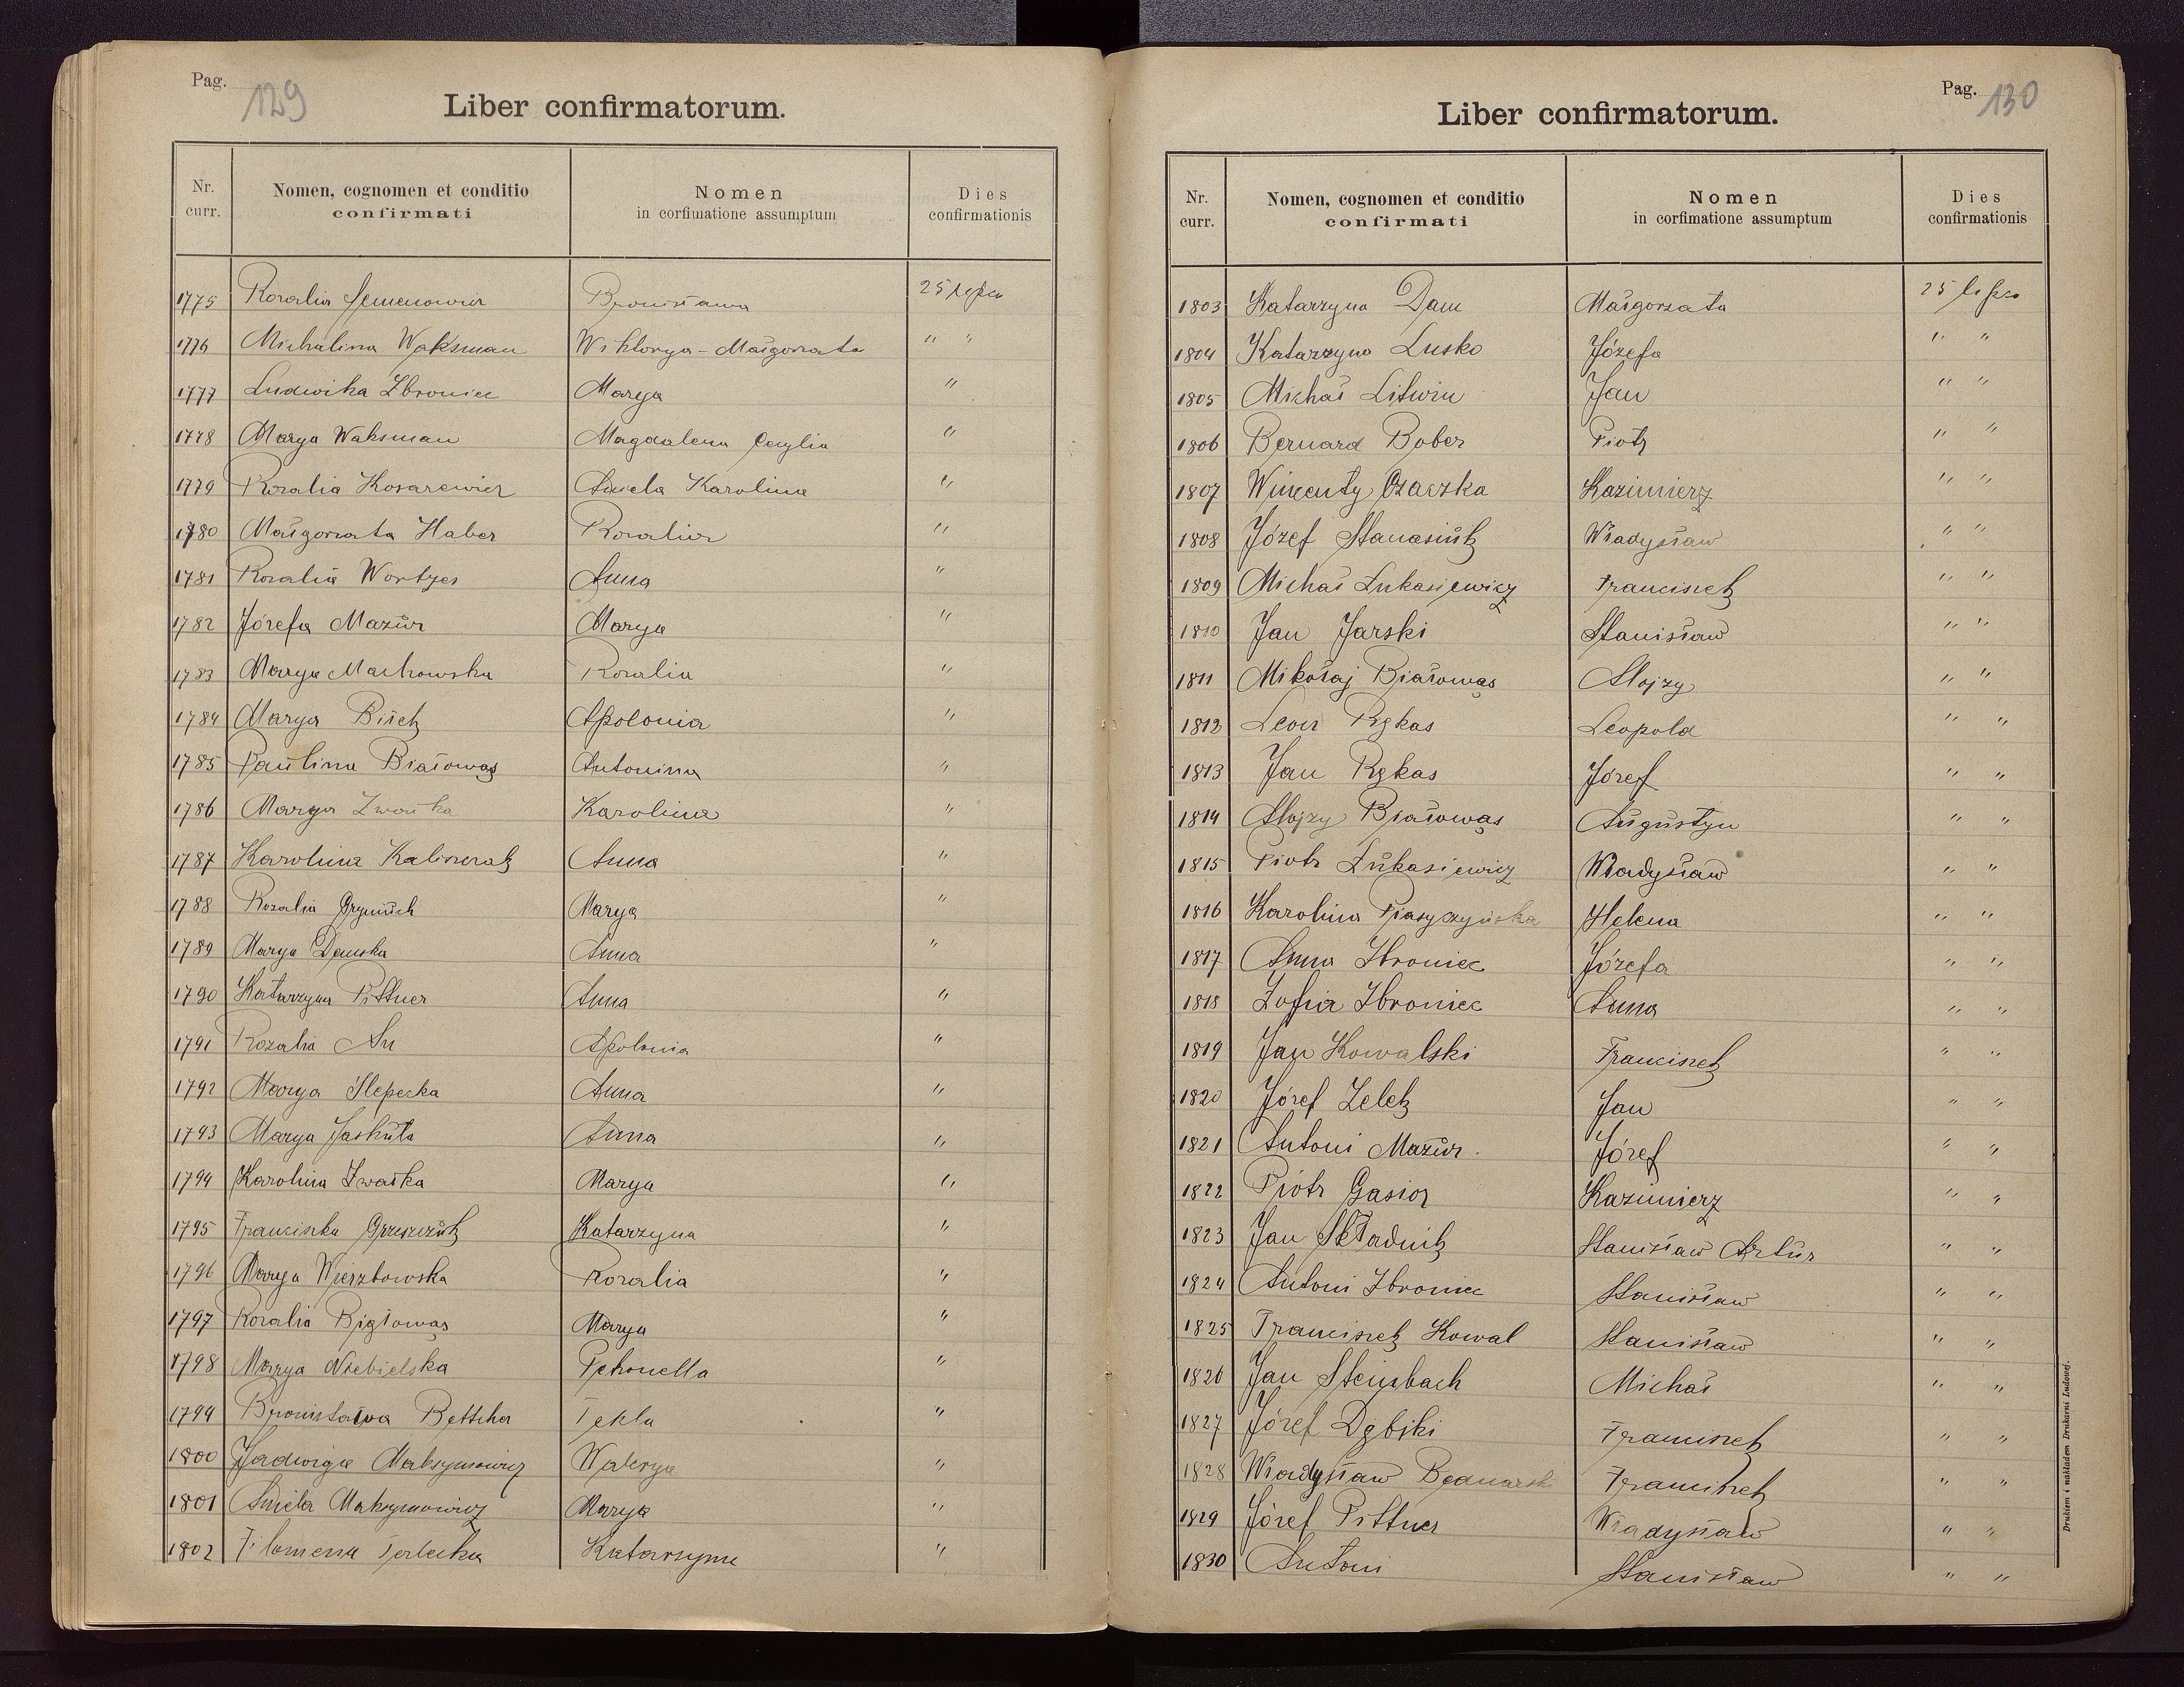 Pag. 129
Liber confirmatorum.
Nr. curr. Nomen, cognomen et conditio confirmati Nomen in corfimatione assumptum Dies confirmationis
1775 Rozalia Semenowicz Bronisława 25 lipca
1776 Michalina Waksman Wiktorya - Małgorzata " "
1777 Ludwika Zbroniec Marya "
1778 Marya Waksman Magdalena Cecylia "
1779 Rozalia Kosarewicz Aniela Karolina "
1780 Małgorzata Haber Rozalia "
1781 Rozalia Wortzes Anna "
1782 Józefa Mazur Marya "
1783 Marya Machowska Rozalia "
1784 Marya Apolonia "
1785 Paulina Białowąs Antonina "
1786 Marya Zwarka Karolina "
1787 Karolina Anna "
1788 Rozalia Marya "
1789 Marya Demska Anna "
1790 Katarzyna Pittner Anna "
1791 Rozalia Apolonia "
1792 Marya Slepecka Anna "
1793 Marya Jaskuła Anna "
1794 Karolina Zwarka Marya "
1795 Franciszka Katarzyna "
1796 Marya Wierzbowska Rozalia "
1797 Rozalia Białowąs Marya "
1798 Marya Niebielska Petronella "
1799 Bronisława Tekla "
1800 Jadwiga Maksymowicz Walerya "
1801 Aniela Maksymowicz Marya "
1802 Filomena Katarzyna "
Pag. 130
Liber confirmatorum.
Nr. curr. Nomen, cognomen et conditio confirmati Nomen in corfimatione assumptum Dies confirmationis
1803 Katarzyna Dam Małgorzata 25 lipca
1804 Katarzyna Lusko Józefa " "
1805 Michał Litwin Jan " "
1806 Bernard Bober Piotr " "
1807 Wincenty Czaczka Kazimierz " "
1808 Józef Stanasiuk Władysław " "
1809 Michał Łukasiewicz Franciszek " "
1810 Jan Jarski Stanisław " "
1811 Mikołaj Białowąs Alojzy " "
1812 Leon Rękas Leopold " "
1813 Jan Rękas Józef " "
1814 Alojzy Białowąs Augustyn " "
1815 Piotr Łukasiewicz Władysław " "
1816 Karolina Piaszczyńska Helena " "
1817 Anna Zbroniec Józefa " "
1818 Zofia Zbroniec Anna " "
1819 Jan Kowalski Franciszek " "
1820 Józef Zelek Jan " "
1821 Antoni Mazur Józef " "
1822 Piotr Gasior Kazimierz " "
1823 Jan Składnik Stanisław Artur " "
1824 Antoni Zbroniec Stanisław " "
1825 Franciszek Kowal Stanisław " "
1826 Jan Steinbach Michał " "
1827 Józef Dębski Franciszek " "
1828 Władysław Bednarski Franciszek " "
1829 Józef Pittner Władysław " "
1830 Antoni Stanisław " "
Drukiem i nakładem Drukarni Ludowej.